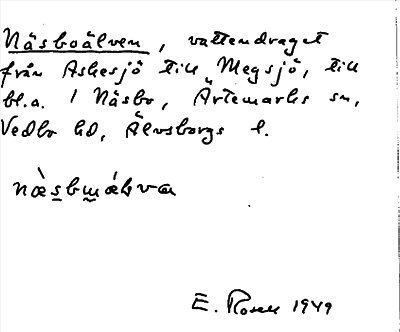 Näsboälven, vattendraget
från Askesjö till Megsjö, till
bl.a. 1 Näsbo, Ärtemarks sn,
Vedbo hd, Älvsborgs l.
E. Rosell 1949